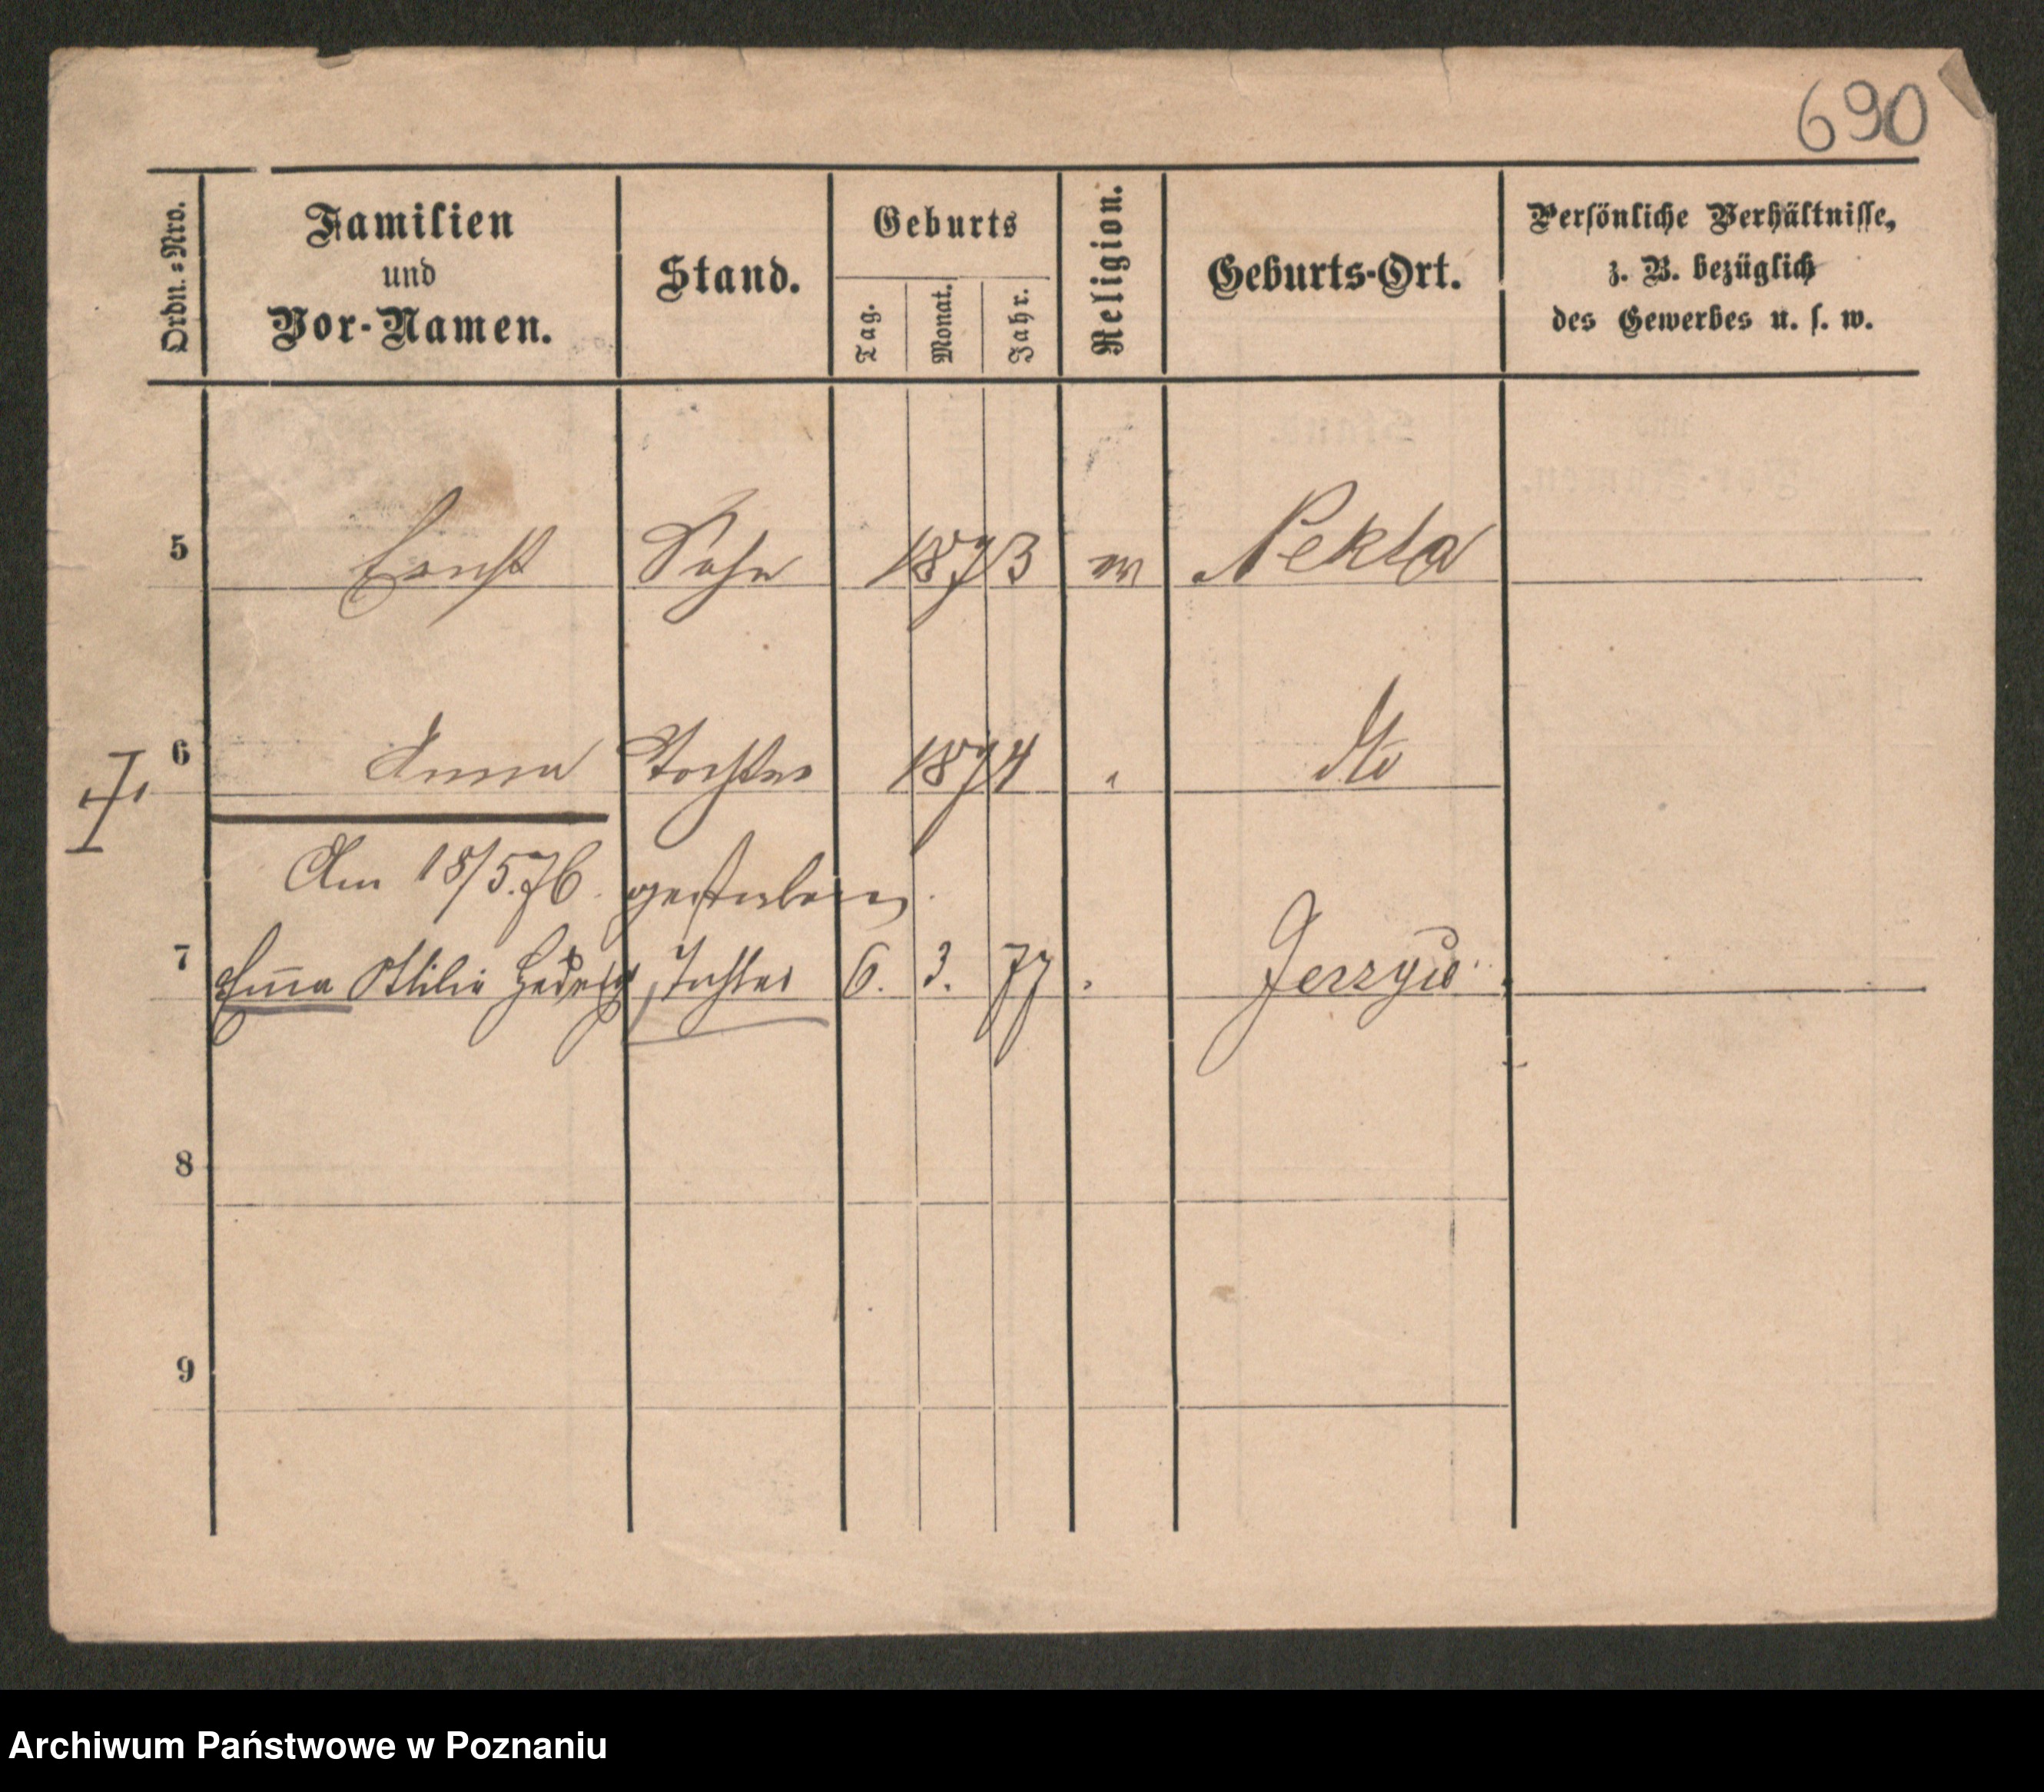 690
Ordn.-Nro. Familien und Vor-Namen. Stand. Geburts Tag. Monat. Jahr. Religion. Geburts-Ort. Persönliche Verhältnisse, z. B. bezüglich des Gewerbes u. s. w.
5 Ernst Sohn 1873 ev Nekla
6 Anna Tochter 1874 " dto
Am 18/5.76. gestorben.
7 Em̅a Ottilie Hedwig Tochter 6. 3. 77 " Jerzyce
8
9
Archiwum Państwowe w Poznaniu